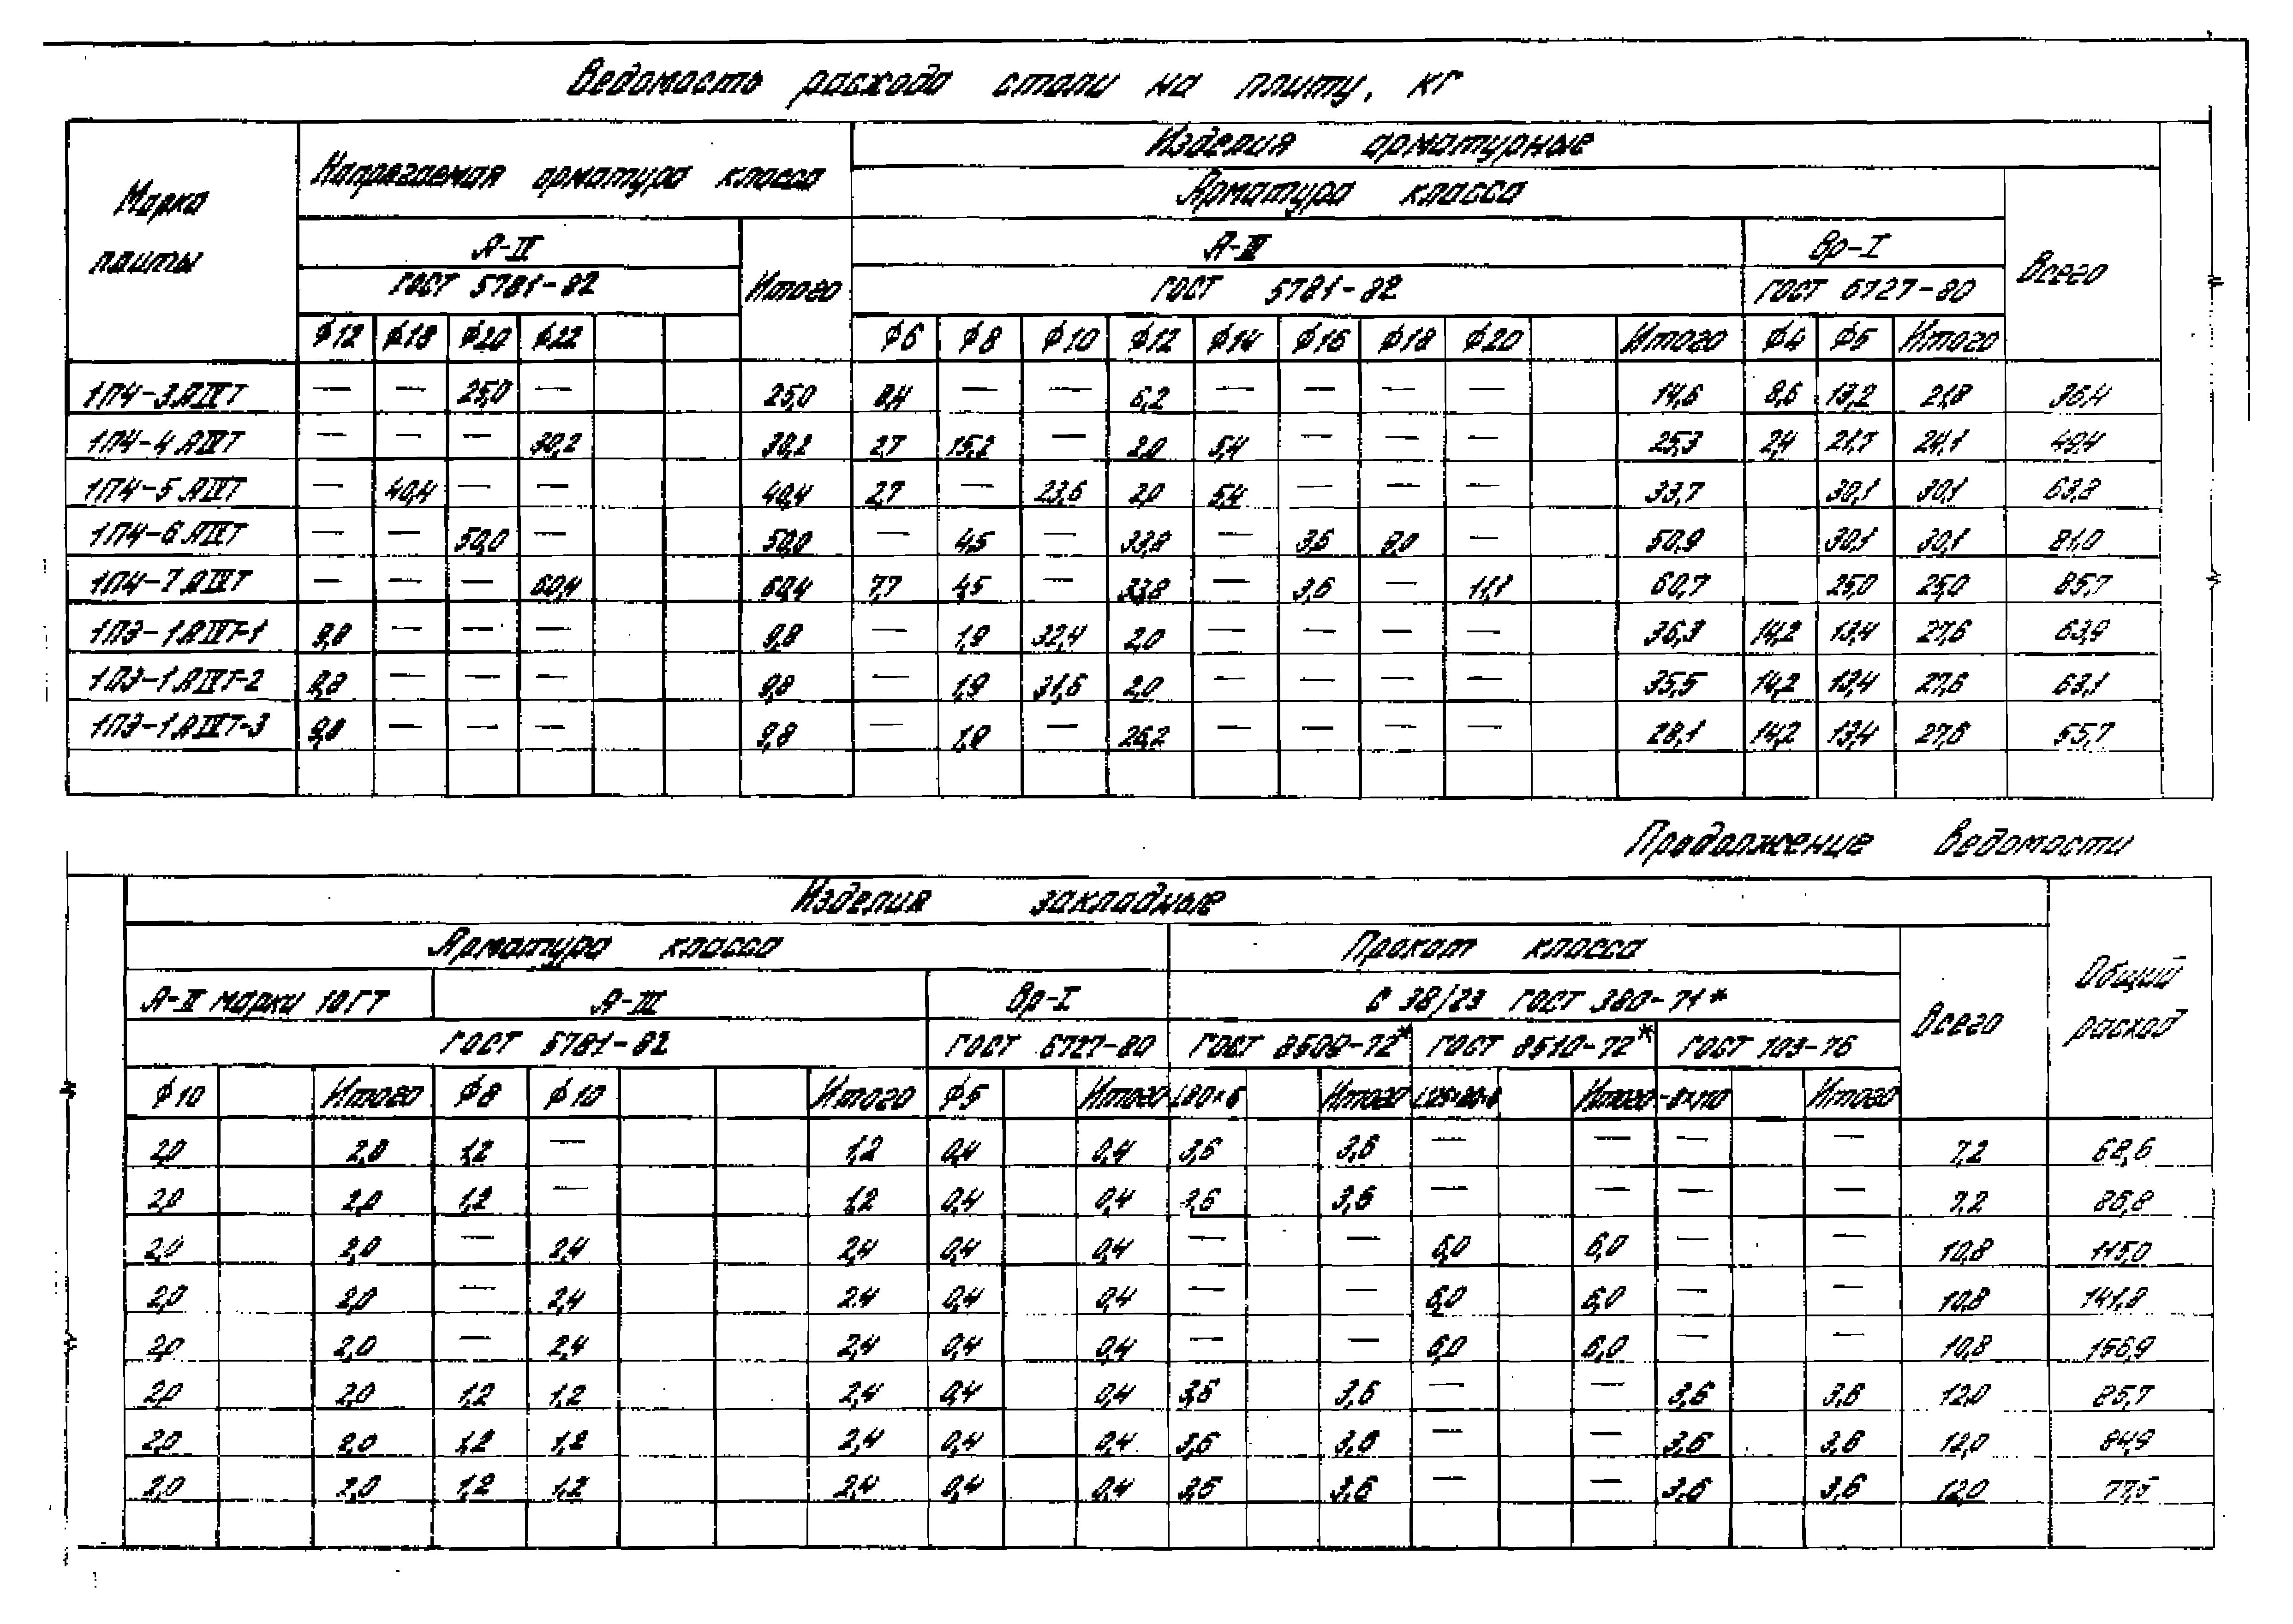 Ведомость расхода стали на плиту, кг
Марка плиты
Напрягаемая арматура класса
Изделия арматурные
Арматура класса
А-IV
Итого
А-III
Вр-I
Всего
ГОСТ 5781-82
ГОСТ 5781-82
ГОСТ 6727-80
ф12 ф18 ф20 ф22 ф6 ф8 ф10 ф12 ф14 ф16 ф18 ф20 Итого ф4 ф5 Итого
1П4-3.АIVТ — — 25,0 — 25,0 8,4 — — 6,2 — — — — 14,6 8,6 13,2 21,8 36,4
1П4-4.АIVТ — — — 30,2 30,2 2,7 15,2 — 2,0 5,4 — — — 25,3 2,4 21,7 24,1 49,4
1П4-5.АIVТ — 40,4 — — 40,4 2,7 — 23,6 2,0 5,4 — — — 33,7 30,1 30,1 63,8
1П4-6.АIVТ — — 50,0 — 50,0 — 4,5 — 33,8 — 3,6 9,0 — 50,9 30,1 30,1 81,0
1П4-7.АIVТ — — — 60,4 60,4 7,7 4,5 — 33,8 — 3,6 — 11,1 60,7 25,0 25,0 85,7
1ПЭ-1.АIVТ-1 9,8 — — — 9,8 — 1,9 32,4 2,0 — — — — 36,3 14,2 13,4 27,6 63,9
1ПЭ-1.АIVТ-2 9,8 — — — 9,8 — 1,9 31,6 2,0 — — — — 35,5 14,2 13,4 27,6 63,1
1ПЭ-1.АIVТ-3 9,8 — — — 9,8 — 1,9 — 26,2 — — — — 28,1 14,2 13,4 27,6 55,7
Продолжение ведомости
Изделия закладные
Общий расход
Арматура класса
Прокат класса
Всего
А-II марки 10ГТ
А-III
Вр-I
С 38/23 ГОСТ 380-71*
ГОСТ 5781-82
ГОСТ 6727-80
ГОСТ 8509-72*
ГОСТ 8510-72*
ГОСТ 103-76
ф10 Итого ф8 ф10 Итого ф5 Итого Итого Итого Итого
2,0 2,0 1,2 — 1,2 0,4 0,4 3,6 3,6 — — — — 7,2 68,6
2,0 2,0 1,2 — 1,2 0,4 0,4 3,6 3,6 — — — — 7,2 86,8
2,0 2,0 — 2,4 2,4 0,4 0,4 — — 6,0 6,0 — — 10,8 115,0
2,0 2,0 — 2,4 2,4 0,4 0,4 — — 6,0 6,0 — — 10,8 141,8
2,0 2,0 — 2,4 2,4 0,4 0,4 — — 6,0 6,0 — — 10,8 156,9
2,0 2,0 1,2 1,2 2,4 0,4 0,4 3,6 3,6 — — 3,6 3,6 12,0 85,7
2,0 2,0 1,2 1,2 2,4 0,4 0,4 3,6 3,6 — — 3,6 3,6 12,0 84,9
2,0 2,0 1,2 1,2 2,4 0,4 0,4 3,6 3,6 — — 3,6 3,6 12,0 77,5